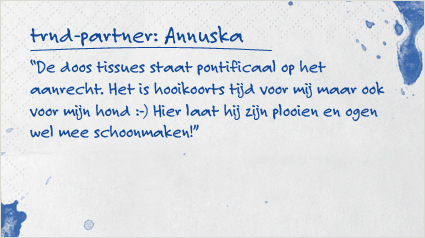 trnd-partner: Annuska
"De doos tissues staat pontificaal op het
aanrecht. Het is hooikoorts tijd voor mij maar ook
voor mijn hond :-) Hier laat hij zijn plooien en ogen
wel mee schoonmaken!"